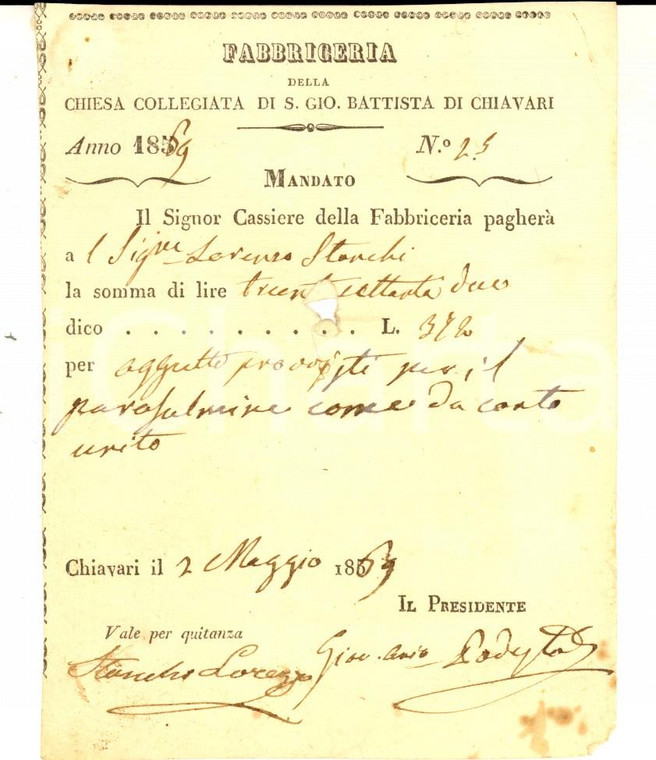 FABBRICERIA
DELLA
CHIESA COLLEGIATA DI S. GIO. BATTISTA DI CHIAVARI
Anno 1869 N.º 25
MANDATO
Il Signor Cassiere della Fabbriceria pagherà
a l Sigre Lorenzo Stanchi
la somma di lire trecentsettanta due
dico . . . . . . . . . . L. 372
per oggetti provvisti per il
come da conto
unito
Chiavari il 2 Maggio 1869
IL PRESIDENTE
Vale per quitanza
Stanchi Lorenzo Giov. Podestà